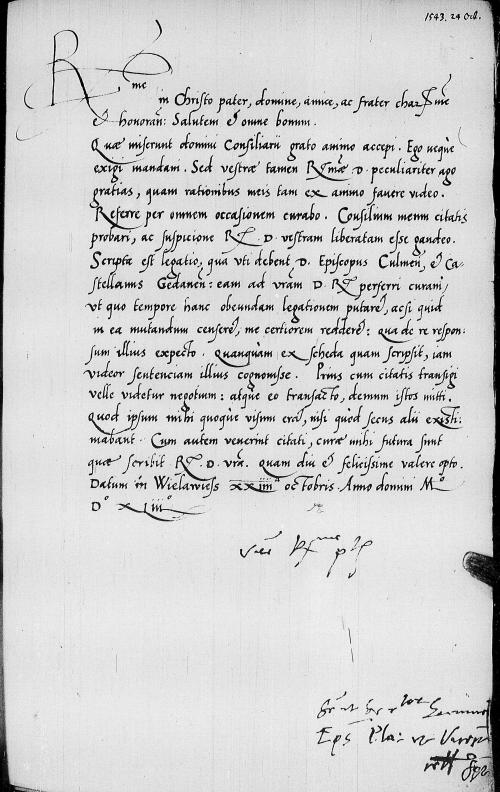 1543. 24 Oct.
R me
in Christo pater, domine, amice, ac frater char.me
et honoran: Salutem et omne bonum.
Quæ miserunt domini Consiliarii grato animo accepi. Ego neque
exigi mandani. Sed vestræ tamen R.mæ D. peculiariter ago
gratias, quam rationibus meis tam ex animo favere video.
Referre per omnem occasionem curabo. Consilium meum citatis
probari, ac suspicione R. D. vestram liberatam esse gaudeo.
Scripta est legatio, qua vti debent D. Episcopus Culmen, et Ca-
stellanus Gedanen: eam ad vram D. R. perferri curani,
vt quo tempore hanc obeundam legationem putaret, acsi quid
in ea mutandum censeret, me certiorem redderet: qua de re respon-
sum illius expecto. Quanquam ex scheda quam scripsit, iam
videor sentenciam illius cognouisse. Prius cum citatis transigi
velle videtur negotium: atque eo transacto, demum istos mitti.
Quod ipsum mihi quoque visum erat, nisi quòd secus alii existi:
mabant. Cum autem venerint citati, curæ mihi futura sunt
quæ scribit R. D. vra. quam diu et felicissime valere opto.
Datum in Wielawiess xxiiii octobris. Anno domini M
D xLiii